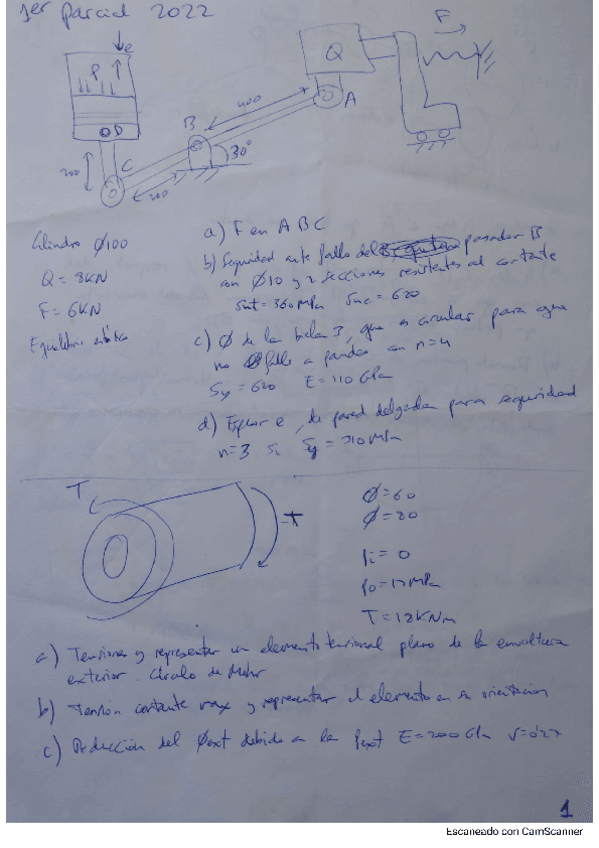 1er parcial 2022
F
e
Q
P
400
A
D
B
30°
C
200
200
Cilindro Ø100
Q = 8KN
F = 6KN
Equilibrio estático
a) F en A B C
b) Seguridad ante fallo del pasador B
con Ø10 y 2 secciones resistentes al cortante
Sut = 360MPa Suc = 620
c) Ø de la biela 3, que es circular para que
no falle a pandeo con n=4
Sy = 620 E = 110 GPa
d) Espesor e, de pared delgada para seguridad
n=3 si Sy = 310MPa
T
-T
Ø=60
Ø=80
pi = 0
po = 17MPa
T = 12KNm
a) Tensiones y representar un elemento tensional plano de la envoltura
exterior. Círculo de Mohr
b) Tensión cortante max y representar el elemento en su orientación
c) Reducción del Øext debido a la pext E=200GPa ν=0'27
1
Escaneado con CamScanner